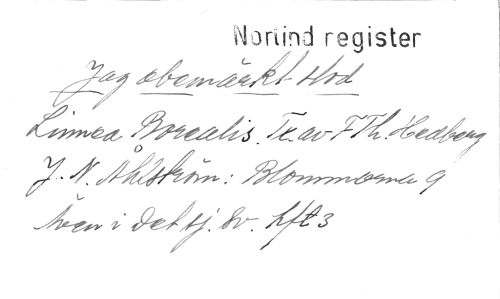 Norlind register
Jag obemärkt stod
Linnea Borealis. Tx. av F Th. Hedberg
J. N. Åhlström: Blommorna 9
Även i Det sj. Sv. hft 3